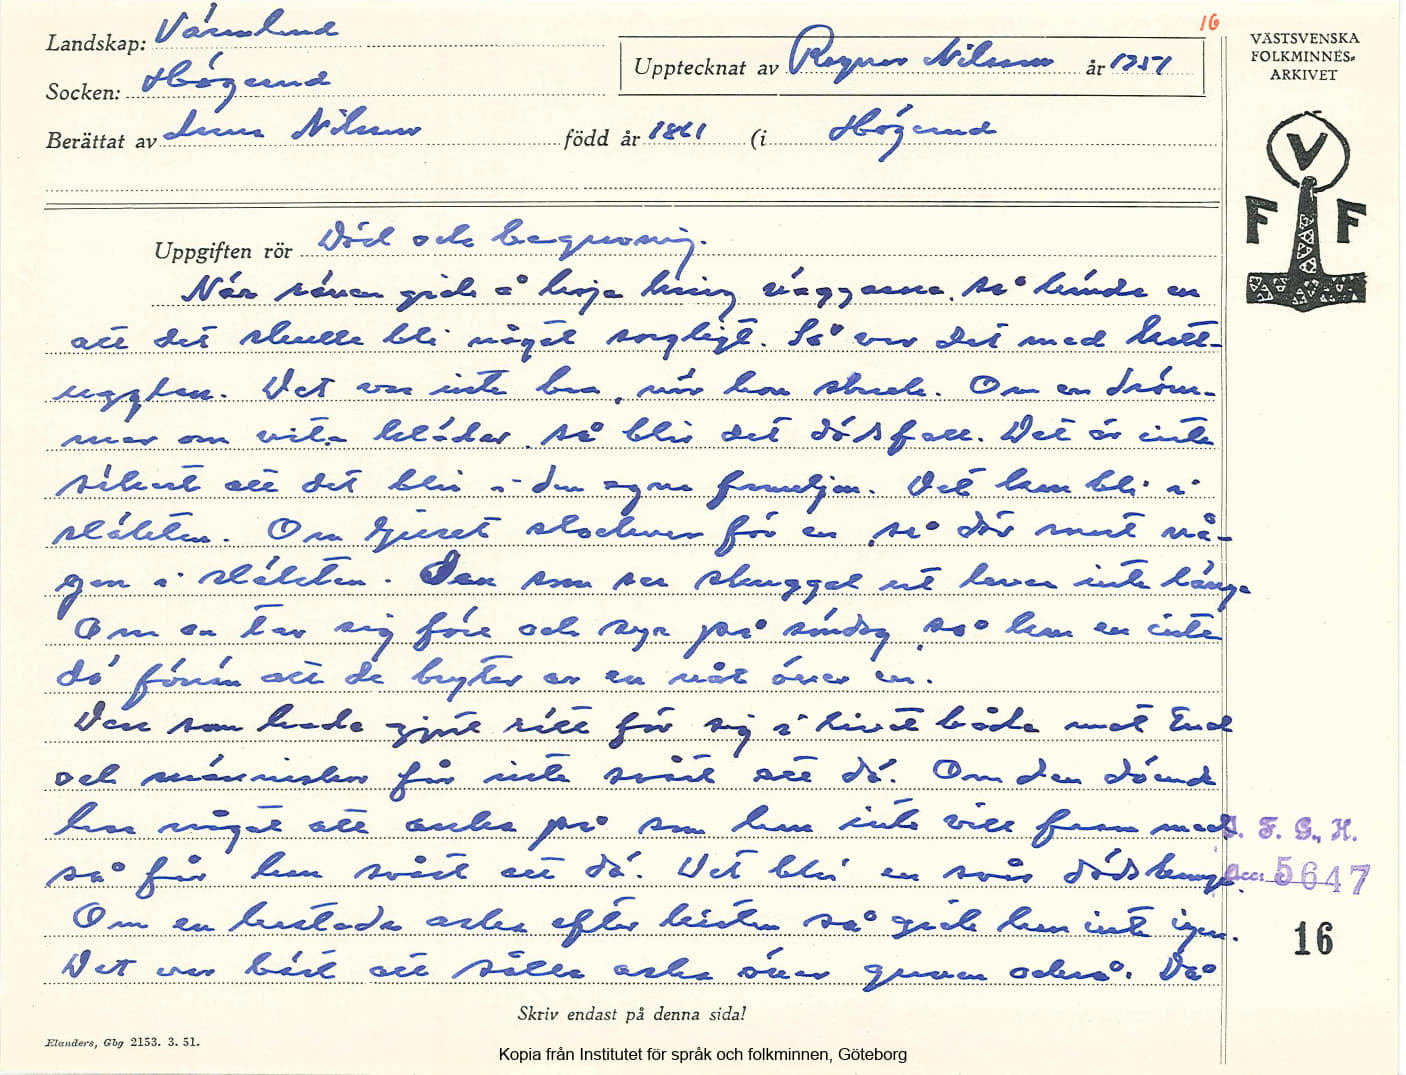 16
Landskap: Värmland
Socken: Högerud
Upptecknat av Ragnar Nilsson år 1951
Berättat av Nilsson född år 1861 (i Högerud
VÄSTSVENSKA
FOLKMINNES-
ARKIVET
V
F F
Uppgiften rör Död och begravning.
När räven gick å kring väggarna, så hände en
att det skulle bli något sorgligt. Så var det med katt-
ugglan. Det var inte bra, när hon skrek. Om en dröm-
mer om vita kläder, så blir det dödsfall. Det är inte
säkert att det blir i den egna familjen. Det kan bli i
släkten. Om ljuset slocknar för en, så dör snart nå-
gon i släkten. Den som ser skuggal ut lever inte länge
Om en tar sig före och syr på söndag, så kan en inte
dö förrän att de bryter av en nål över en.
Den som hade gjort rätt för sig i livet både mot Gud
och människor får inte svårt att dö. Om den döende
har något att på som han inte vill fram med
så får han svårt att dö. Det blir en svår dödskamp.
Om en kastade aska efter kistan så gick han inte igen.
Det var bäst att sålla aska över graven också. Då
I. F. G. H.
Acc: 5647
16
Skriv endast på denna sida!
Elanders, Gbg 2153. 3. 51.
Kopia från Institutet för språk och folkminnen, Göteborg